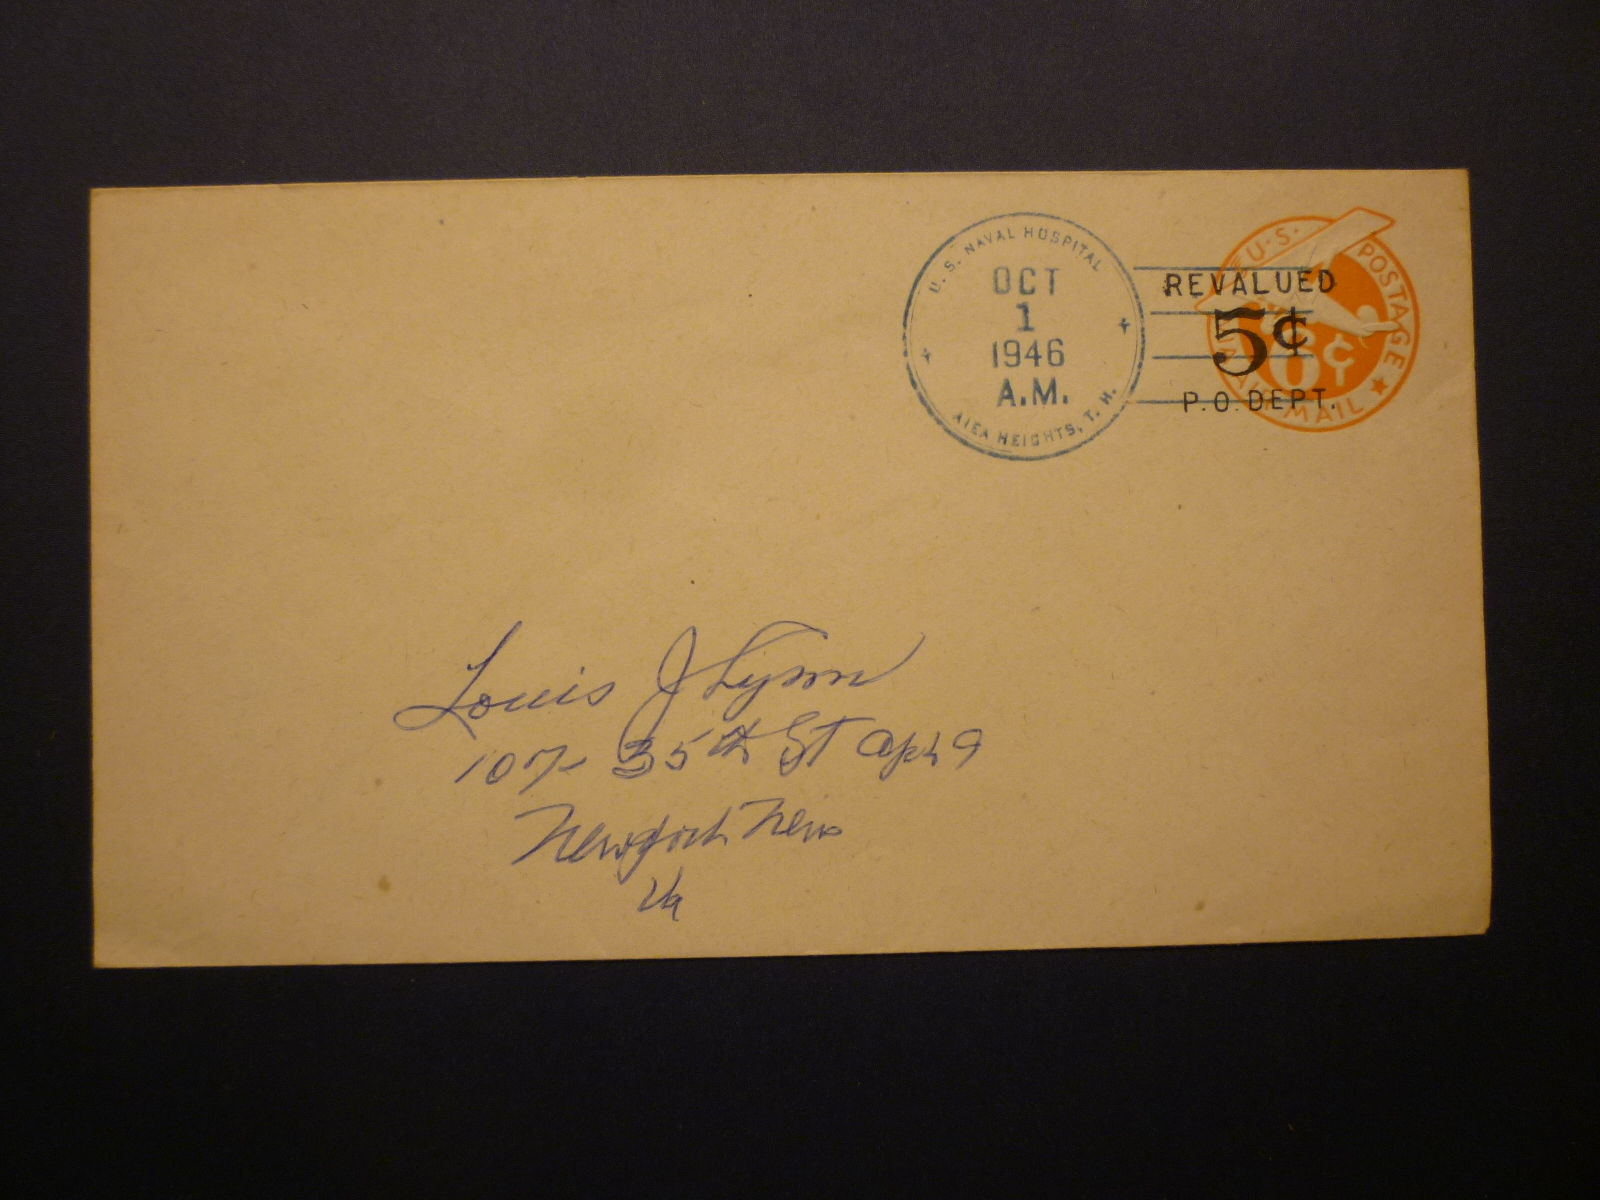 U.S. NAVAL HOSPITAL
OCT
1
1946
A.M.
AIEA HEIGHTS, T.H.
U.S. POSTAGE
REVALUED
5¢
6¢
P.O.DEPT.
AIR MAIL
Louis J
107- 35th St Apt 9
Newport News
Va